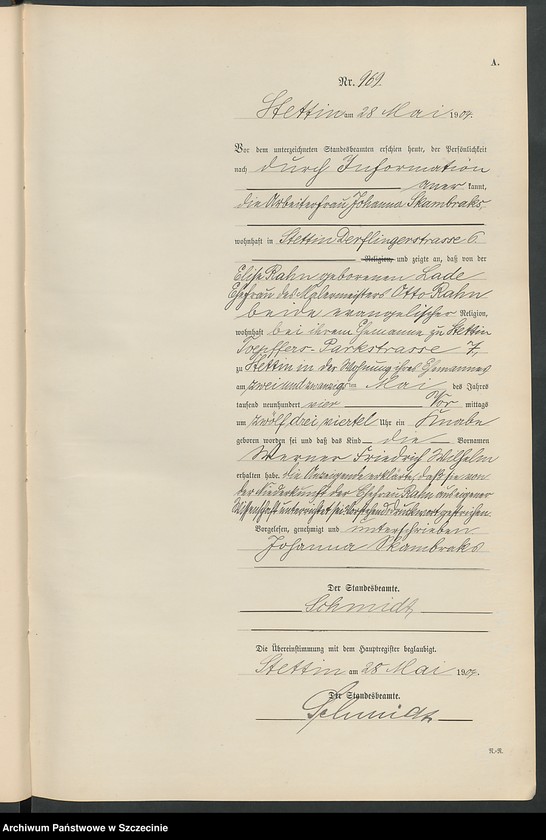 A.
Nr. 969.
Stettin am 28 Mai 1904.
Vor dem unterzeichneten Standesbeamten erschien heute, der Persönlichkeit
nach durch Information
aner kannt,
die Arbeiterfrau Johanna Skambraks,
wohnhaft in Stettin Derflingerstrasse 6.
Religion, und zeigte an, daß von der
Elise Rahn geborenen Lade
Ehefrau des Malermeisters Otto Rahn
beide evangelischer Religion,
wohnhaft bei ihrem Ehemanne zu Stettin
Toepffers-Parkstrasse 7,
zu Stettin in der Wohnung ihres Ehemannes
am zwei und zwanzigsten Mai des Jahres
tausend neunhundert vier Vor mittags
um zwölf drei viertel Uhr ein Knabe
geboren worden sei und daß das Kind die Vornamen
Werner Friedrich Wilhelm
erhalten habe. Die Anzeigende erklärte, daß sie von
der Niederkunft der Ehefrau Rahn aus eigener
Wissenschaft unterrichtet sei. Vorstehend 1 Druckwort gestrichen.
Vorgelesen, genehmigt und unterschrieben
Johanna Skambraks
Der Standesbeamte.
Schmidt
Die Übereinstimmung mit dem Hauptregister beglaubigt.
Stettin am 28 Mai 1904.
Der Standesbeamte.
Schmidt
R.-R.
Archiwum Państwowe w Szczecinie